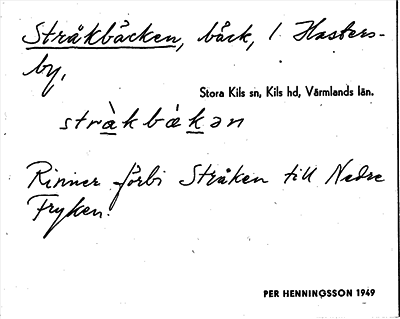 Stråkbäcken, bäck, l Hasters-
by,
Stora Kils sn, Kils hd, Värmlands län.
stràkbɛ̀kən
Rinner förbi Stråken till Nedre
Fryken.
PER HENNINGSSON 1949